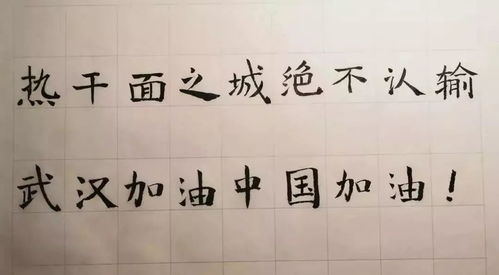 热干面之城绝不认输
武汉加油中国加油！